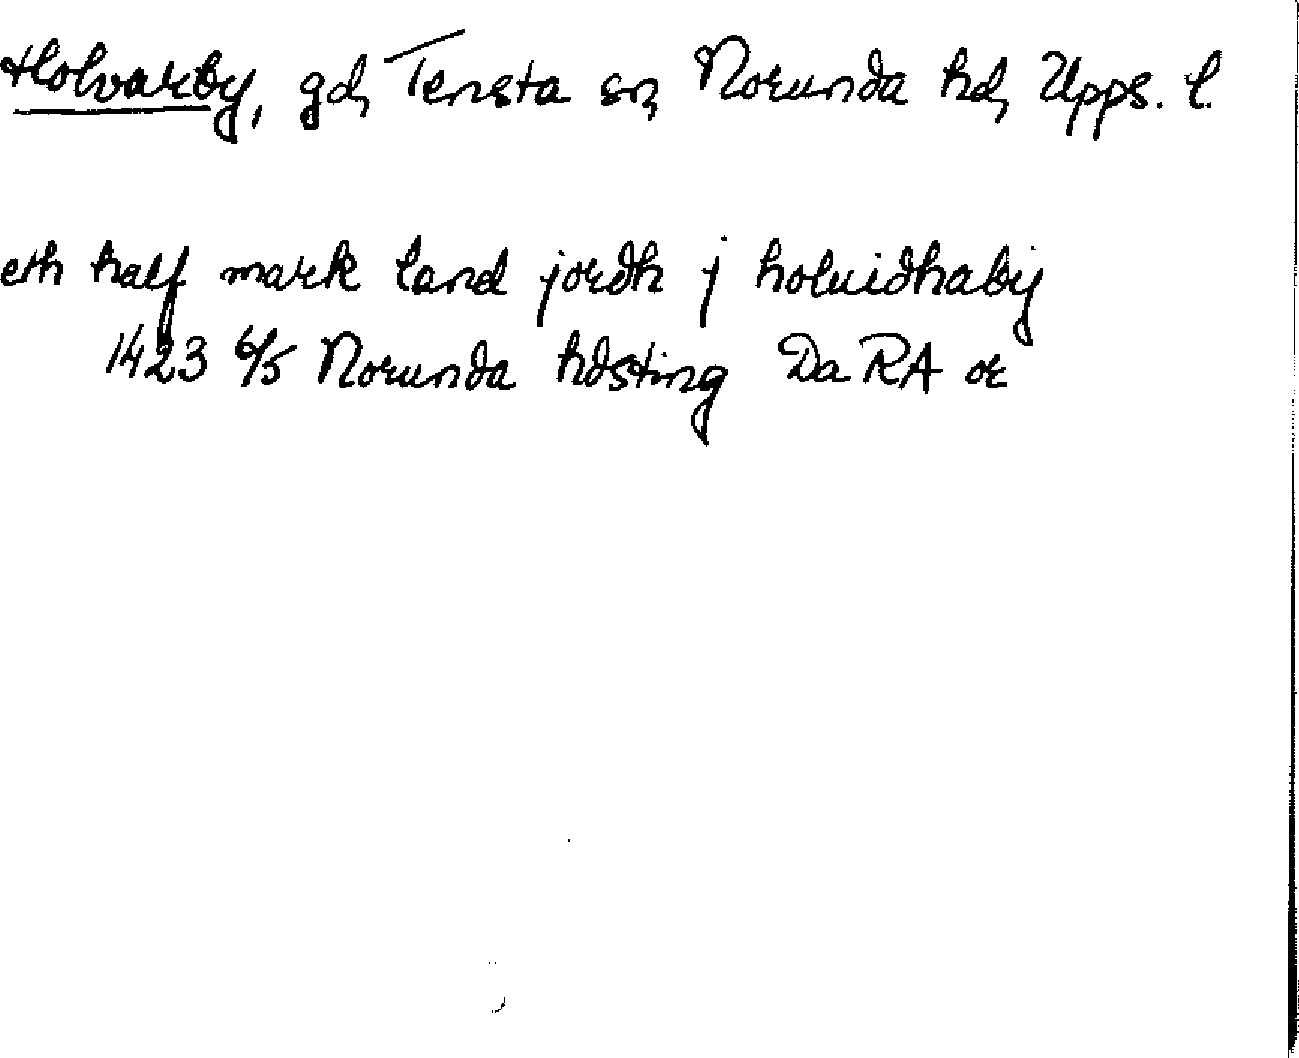 Holvarby, gd, Tensta sn, Norunda hd, Upps. l.
eth half mark land jordh j holuidhaby
1423 6/5 Norunda hdsting Da RA or